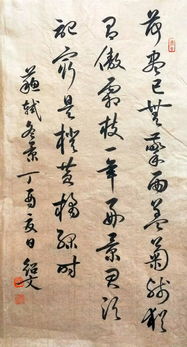 荷盡已無擎雨蓋菊殘猶
有傲霜枝一年好景君須
記最是橙黄橘綠时
蘇軾冬景丁酉夏日紹文